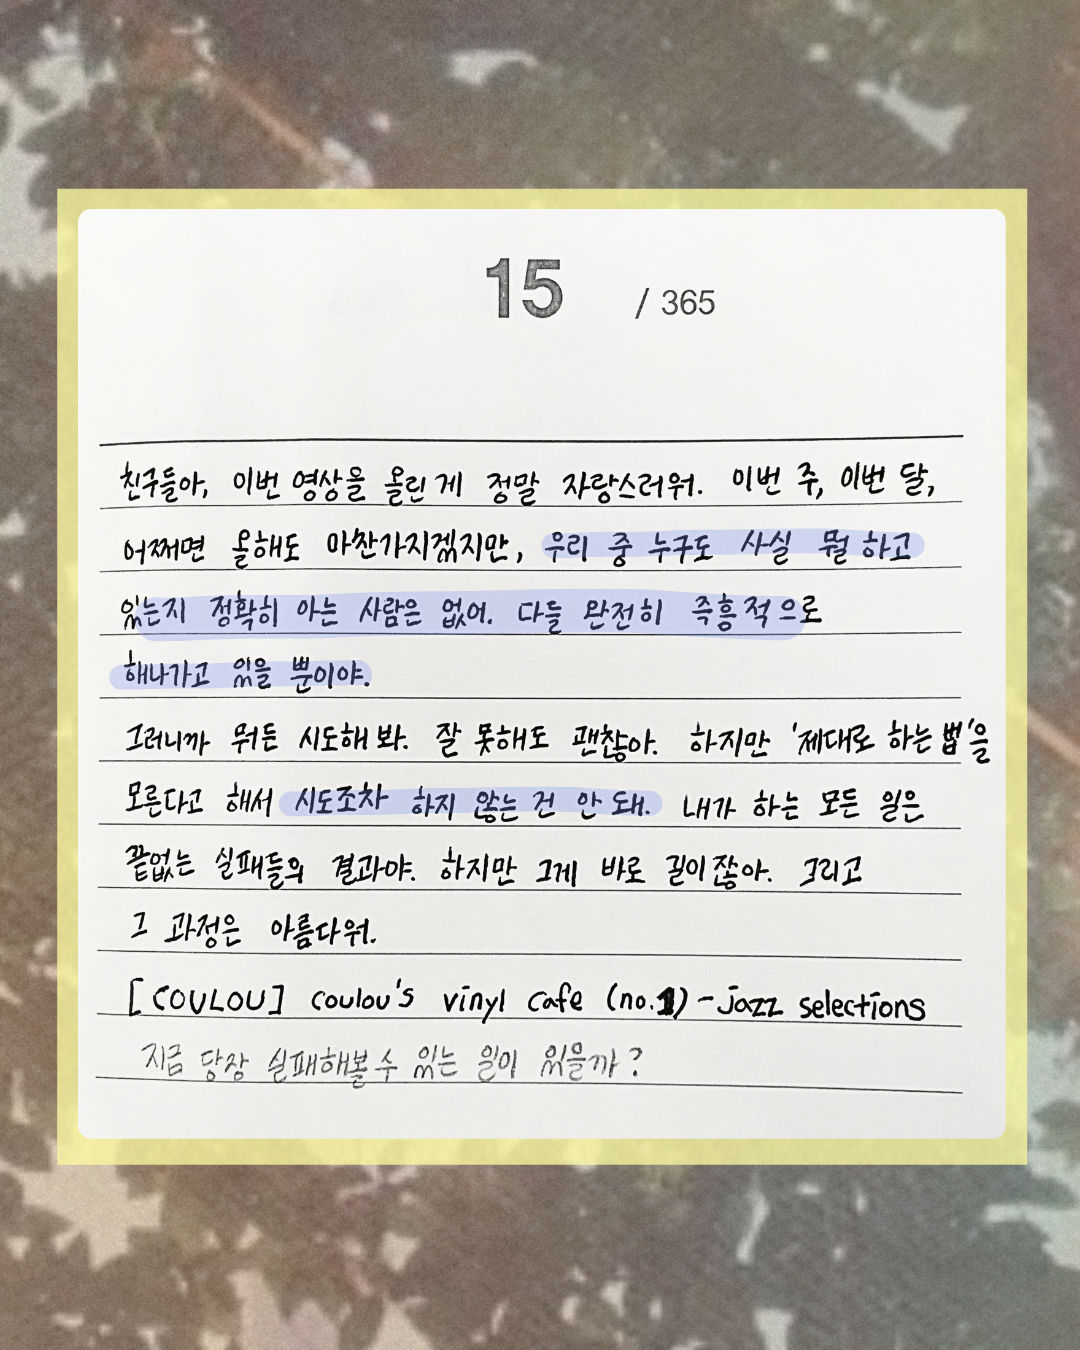 15 / 365
친구들아, 이번 영상을 올린 게 정말 자랑스러워. 이번 주, 이번 달,
어쩌면 올해도 마찬가지겠지만, 우리 중 누구도 사실 뭘 하고
있는지 정확히 아는 사람은 없어. 다들 완전히 즉흥적으로
해나가고 있을 뿐이야.
그러니까 뭐든 시도해 봐. 잘 못해도 괜찮아. 하지만 '제대로 하는 법'을
모른다고 해서 시도조차 하지 않는 건 안 돼. 내가 하는 모든 일은
끝없는 실패들의 결과야. 하지만 그게 바로 길이잖아. 그리고
그 과정은 아름다워.
[COULOU] coulou's vinyl cafe (no.1) - jazz selections
지금 당장 실패해볼 수 있는 일이 있을까?